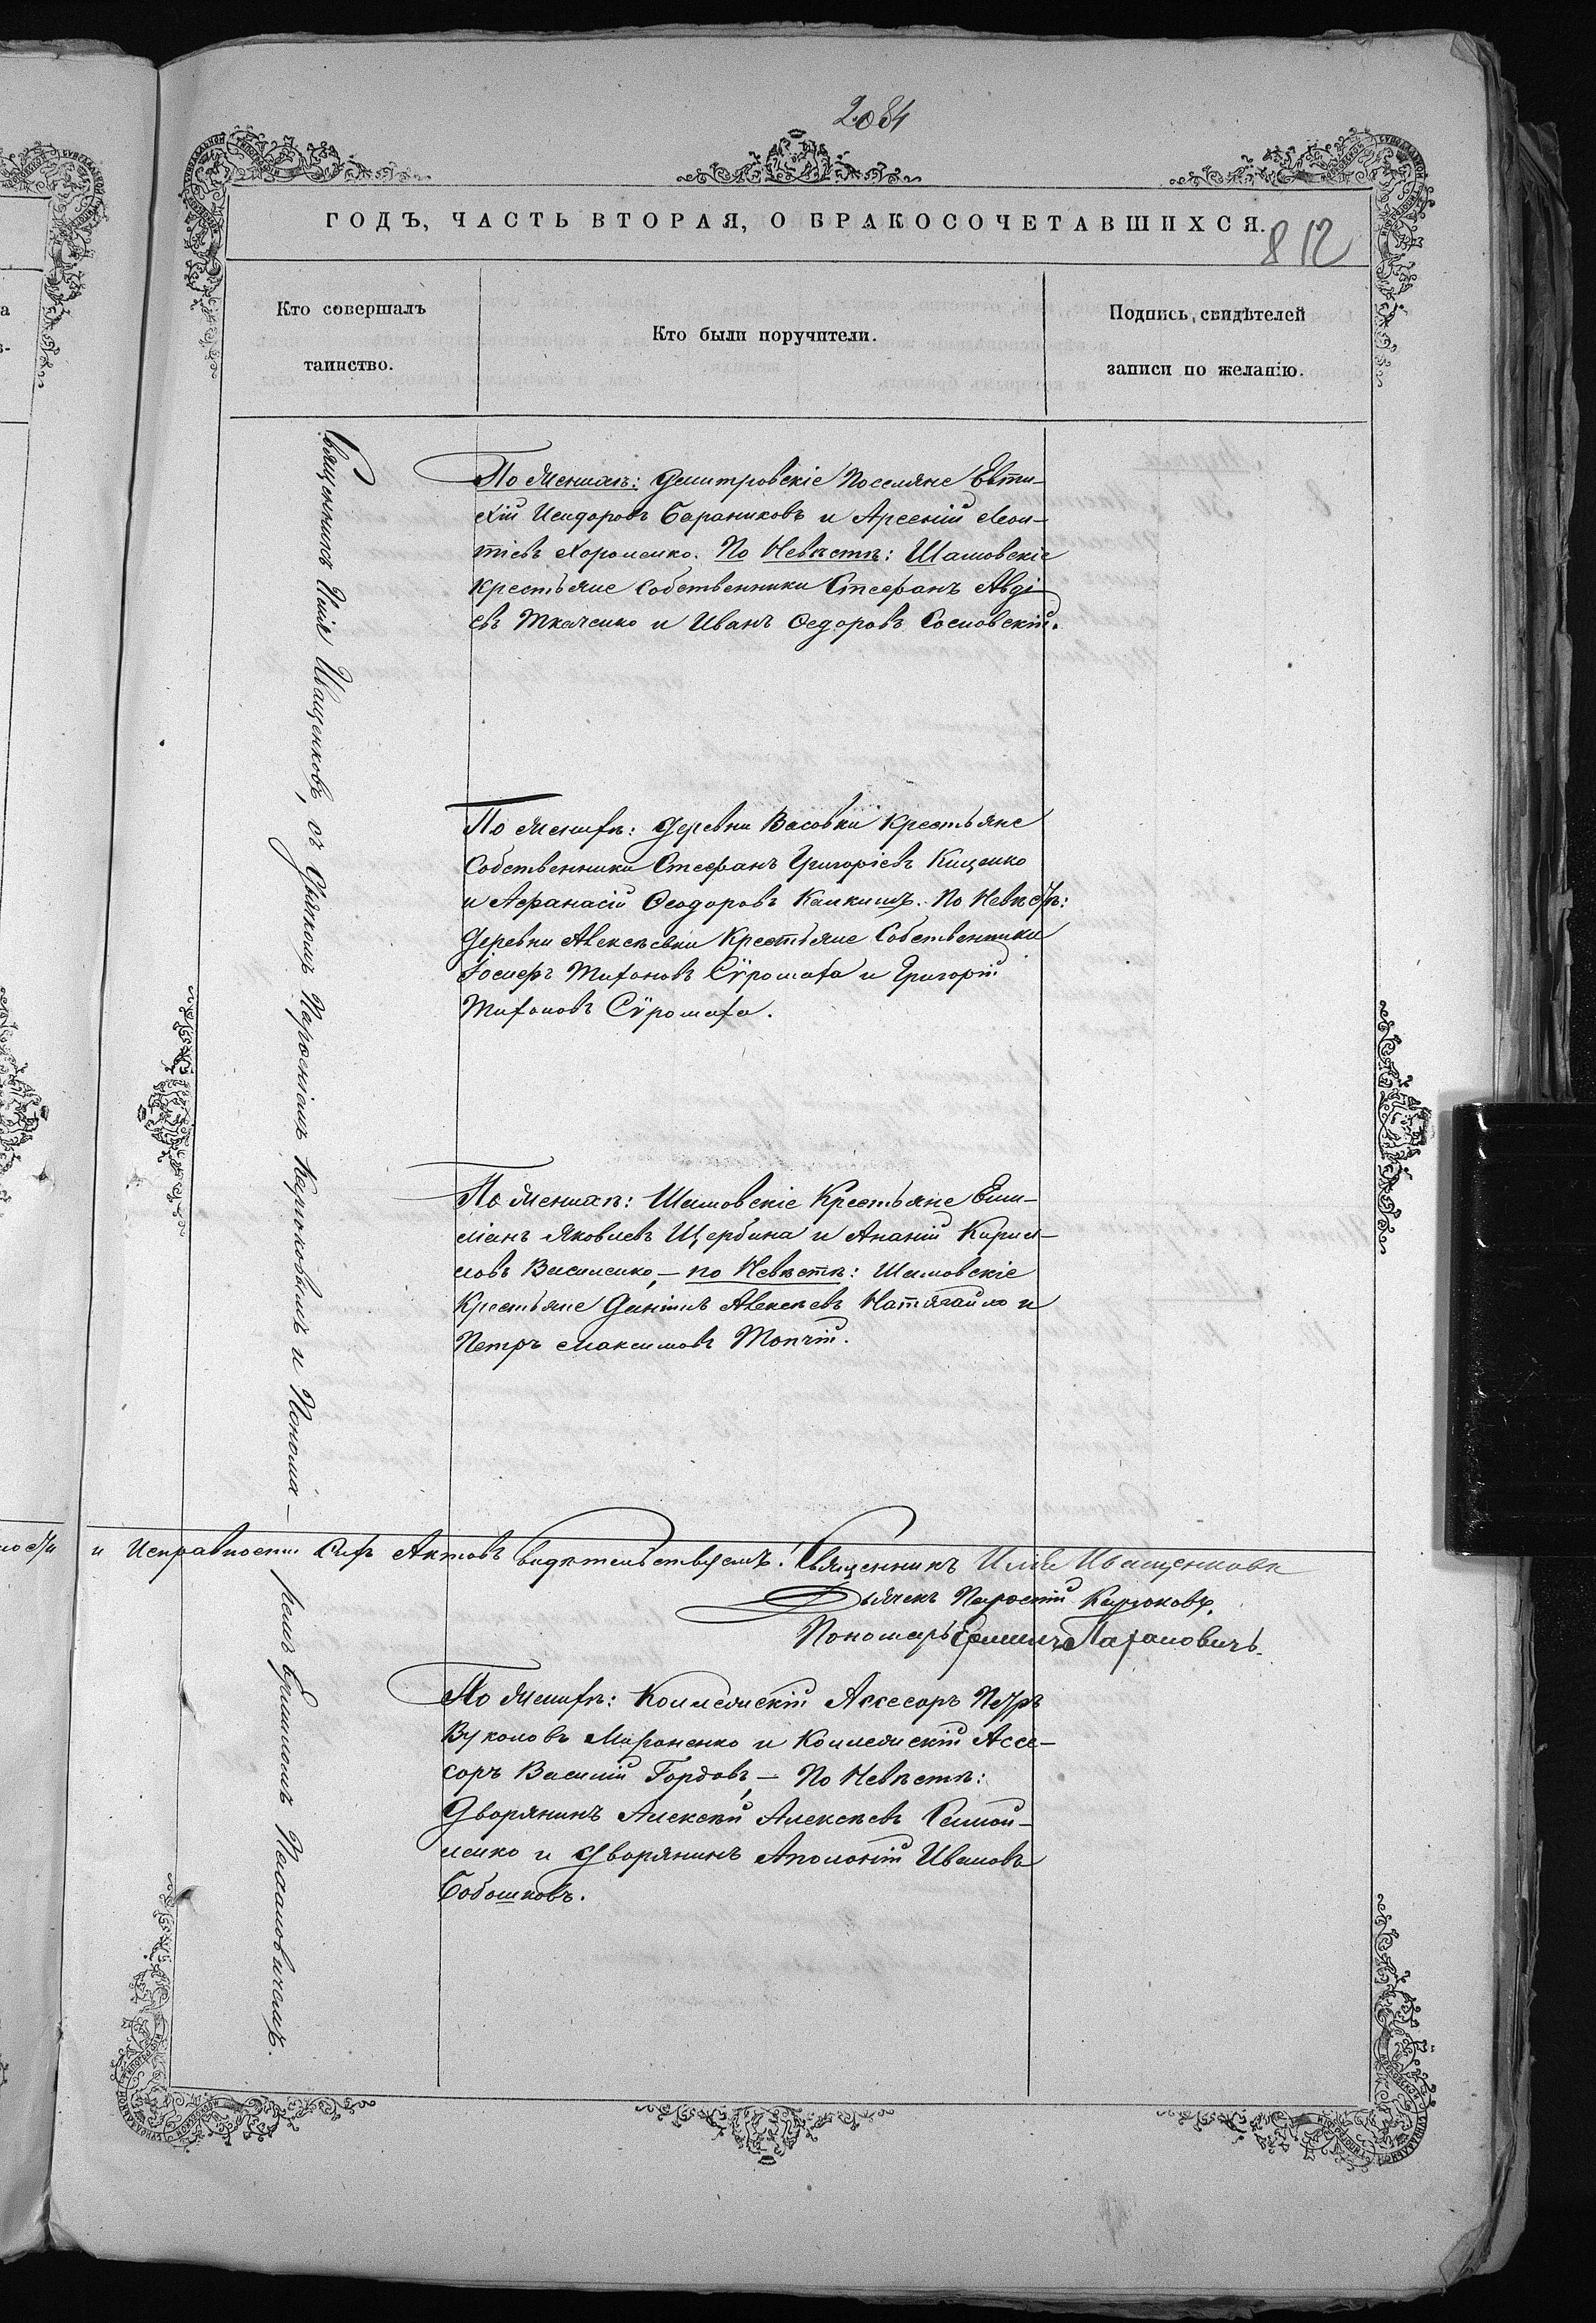 2084
ГОДЪ, ЧАСТЬ ВТОРАЯ, О БРАКОСОЧЕТАВШИХСЯ.
812
Кто совершалъ
таинство.
Кто были поручители.
Подпись свидѣтелей
записи по желанію.
Священникъ Илія Иващенковъ, съ Дьякомъ Пароеніомъ Карюковымъ и Понома-
ремъ Ермиломъ
По Женихѣ: Димитровскіе Поселяне Евти-
хій Исидоровъ Бараниковъ и Арсеній Леон-
тіевъ Хороменко. По Невѣстѣ: Шамовскіе
Крестьяне Собственники Стефанъ Авді-
евъ Ткаченко и Иванъ Ѳедоровъ Сосновскій.
По Женихѣ: Деревни Васовки Крестьяне
Собственники Стефанъ Григоріевъ Кищенко
и Афанасій Ѳеодоровъ. По Невѣстѣ:
Деревни Алексѣевки Крестьяне Собственники
Іосифъ Тихоновъ Сѵромаха и Григорій
Тихоновъ Сѵромаха.
По Женихѣ: Шамовскіе Крестьяне Еми-
ліанъ Яковлевъ Щербина и Ананій Кирил-
ловъ Василенко, — по Невѣстѣ: Шамовскіе
Крестьяне Даніилъ Алексѣевъ Натягайло и
Петръ Максимовъ Топчій.
и Исправности Сихъ Актовъ видѣтельствуемъ: Священникъ Илія Иващенковъ
Дьячекъ Пароеній Карюковъ.
Пономарь Ермилъ
По Женихѣ: Коллежскій Ассесоръ Петръ
Вуколовъ Мироненко и Коллежскій Ассе-
соръ Василій Гордовъ, — По Невѣстѣ:
Дворянинъ Алексѣй Алексѣевъ Самой-
ленко и Дворянинъ Аполоній Ивановъ
Бобошковъ.